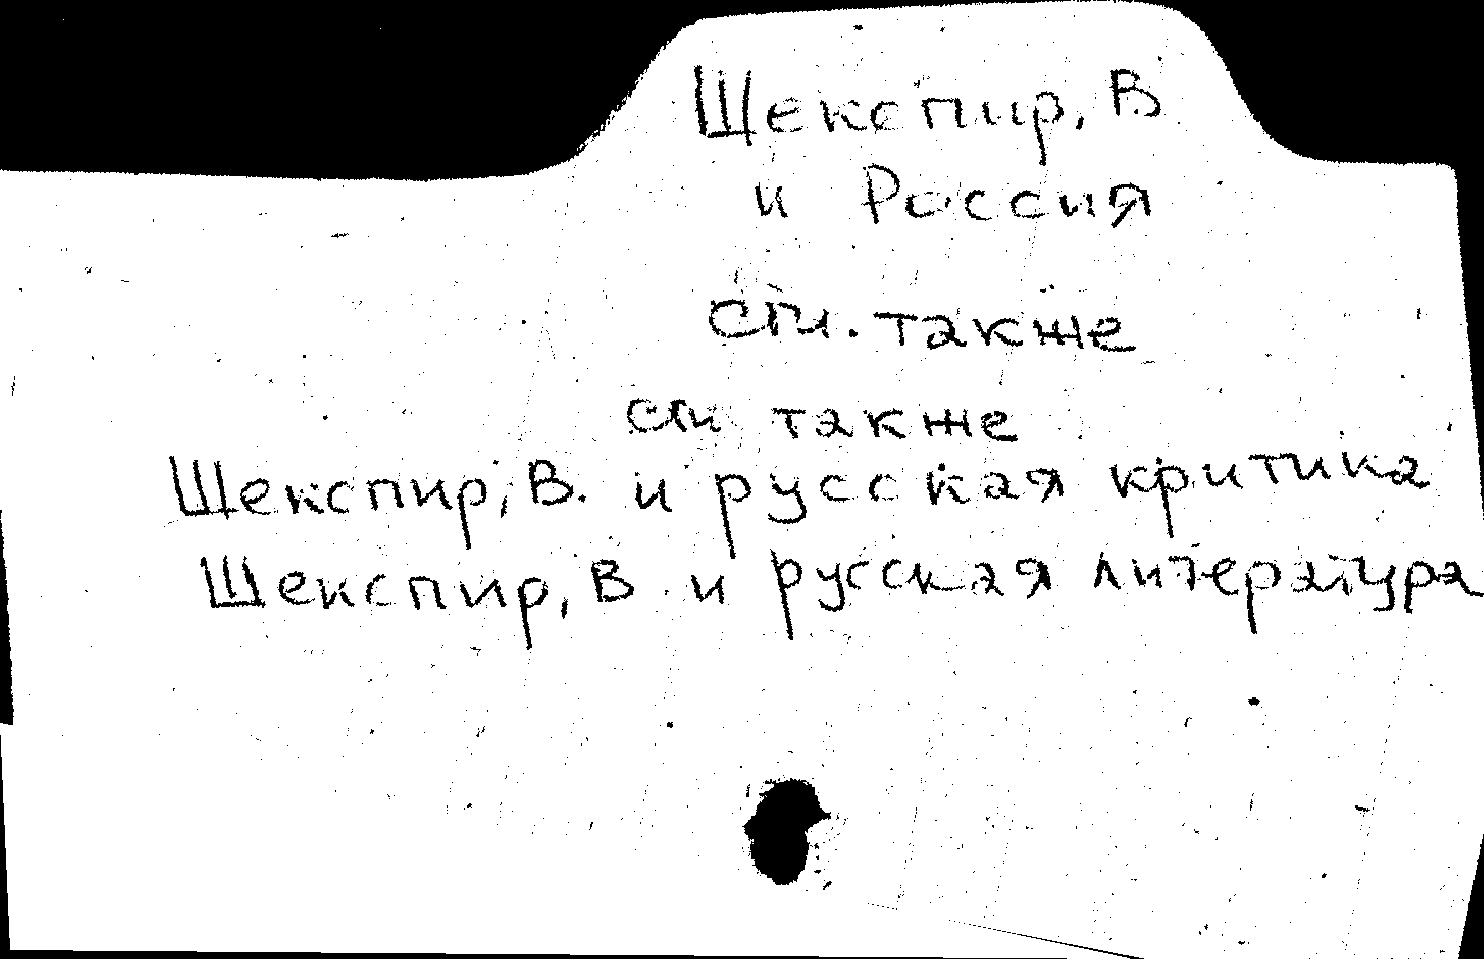 Щекспир, В
и Россия
см. также
см также
Щекспир, В. и русская критика
Шекспир, В. и русская литература